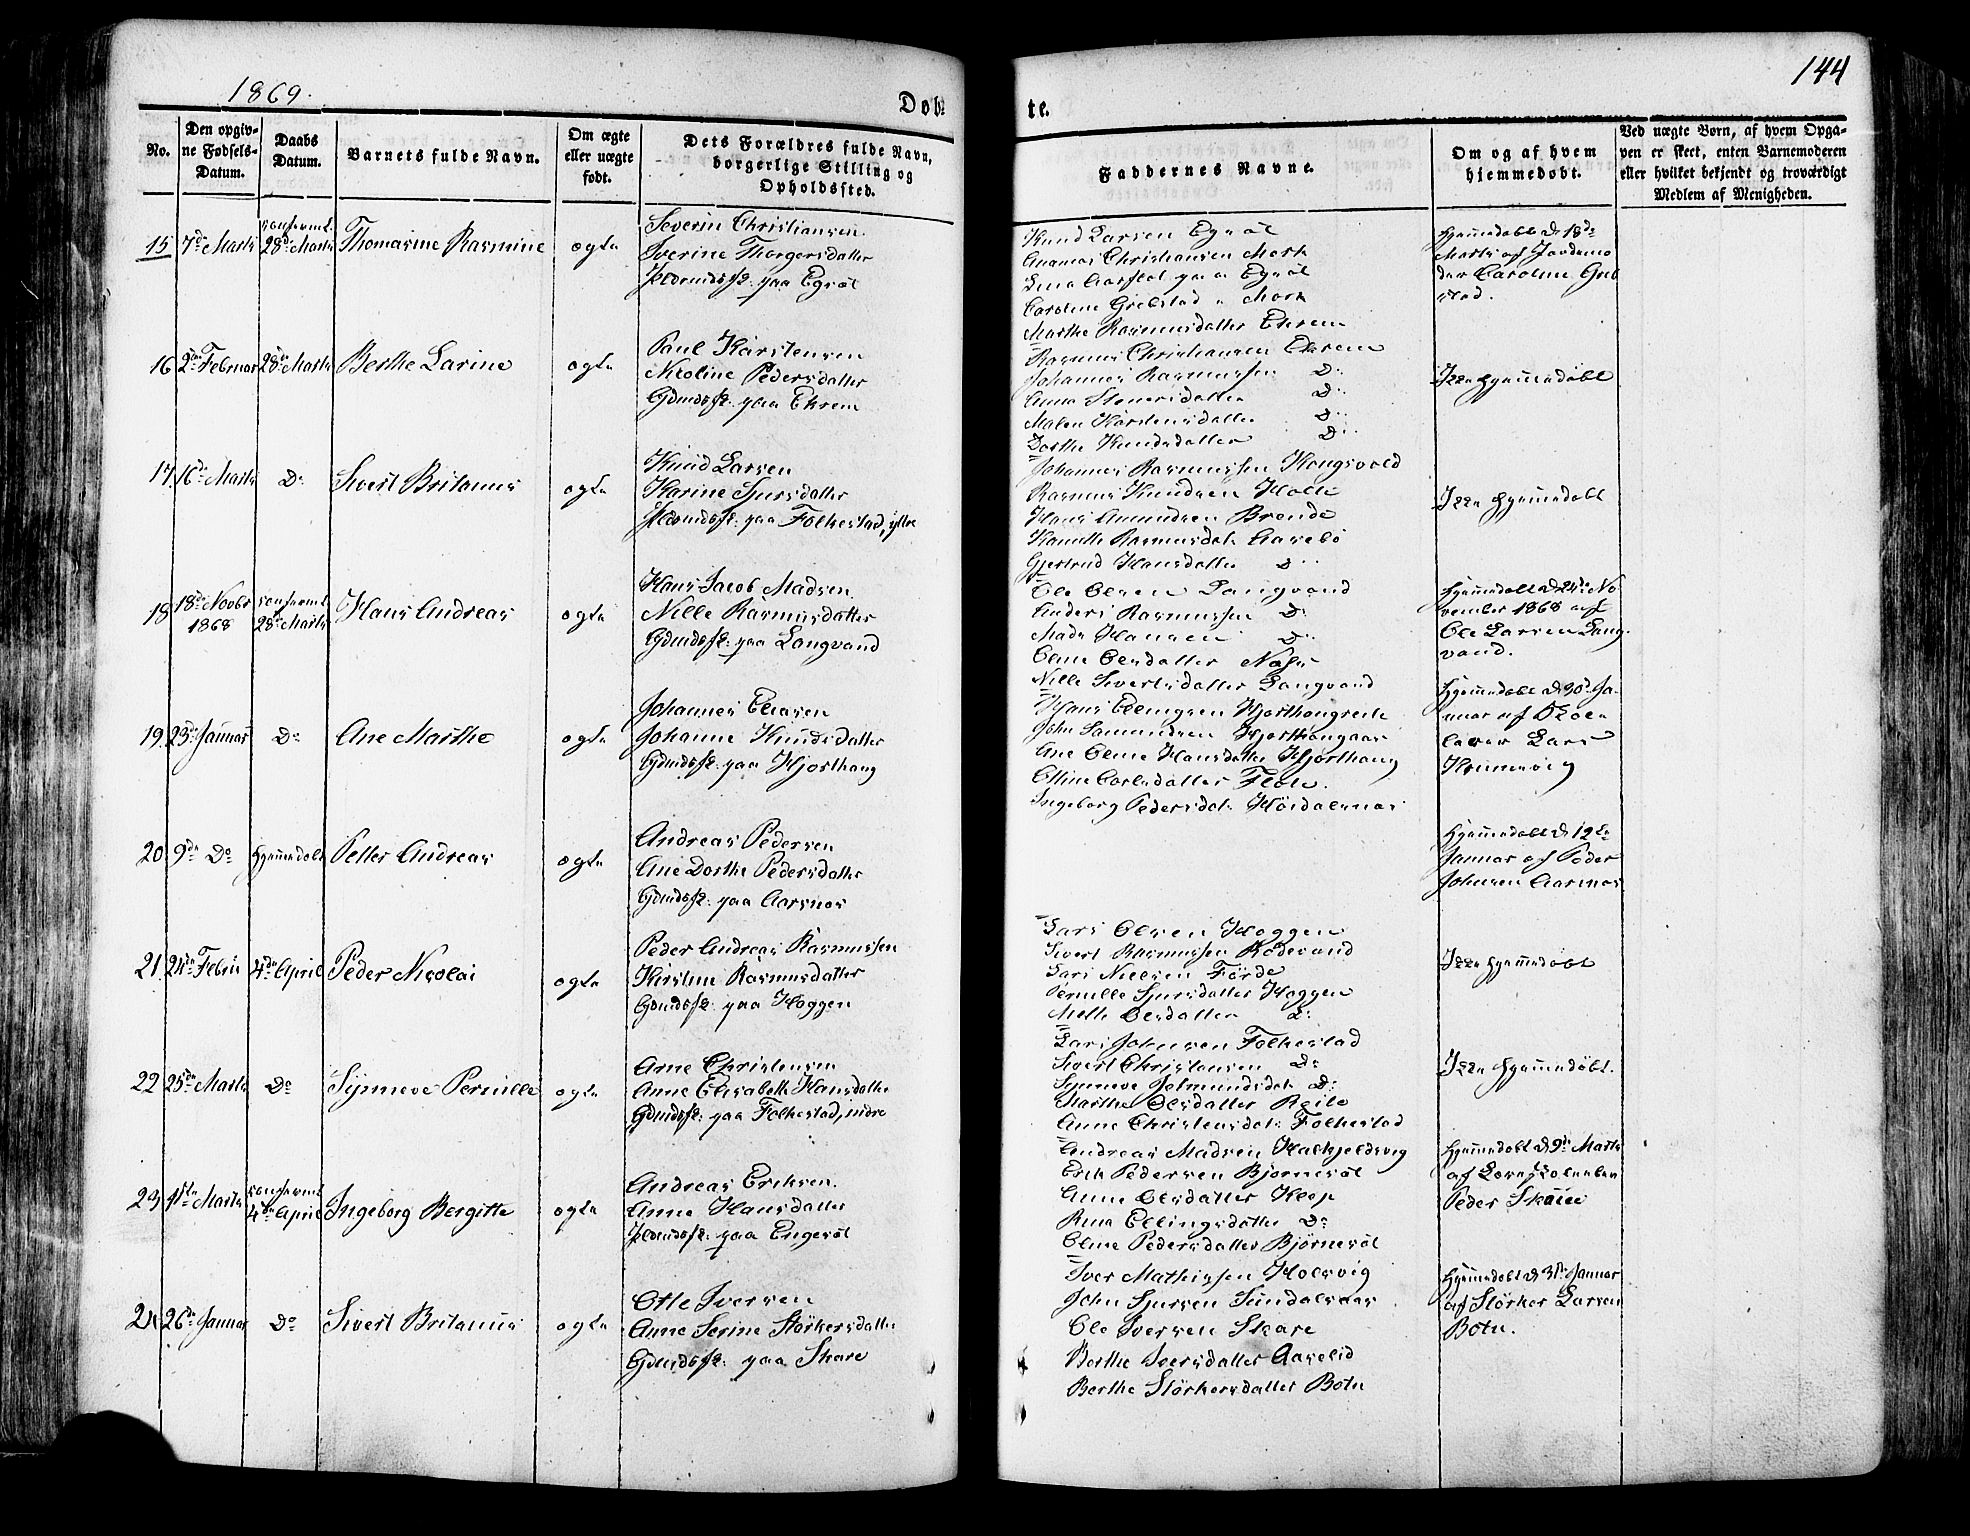 1869.
144
Døb-
te.
No.
Den opgiv-
ne Fødsels-
Datum.
Daabs
Datum.
Barnets fulde Navn.
Om ægte
eller uægte
født.
Dets Forældres fulde Navn,
borgerlige Stilling og
Opholdssted.
Faddernes Navne.
Om og af hvem
hjemmedøbt.
Ved uægte Børn, af hvem Opga-
ven er skeet, enten Barnemoderen
eller hvilket bekjendt og troværdigt
Medlem af Menigheden.
15
7de Marts
28de Marts
Thomasine Rasmine
ægte
Severin Christiansen.
Iverine Thorgersdatter
paa Egsæt
Knud Larsen Egsæt
Christiansen Mork
Lina Aarflot paa Egsæt
Caroline Grebstad " Mork
Marthe Rasmusdatter Ekrem
Hjemmedøbt d 18de
Marts af Jordemo
der Caroline Greb
stad.
16
2den Februar
28de Marts
Berthe Larine
ægte
Paul Karstensen
Nicoline Pedersdatter
Gdmdsfk: paa Ekrem
Rasmus Christiansen Ekrem
Johannes Rasmussen Do
Anna Steneridatter Do
Malen Karstensdatter Do
Dorthe Knudsdatter Do
Ikke hjemmedøbt
17
16de Marts
Do
Sivert Britanus
ægte
Knud Larsen
Karine Sjursdatter
paa Folkestad, ytre
Johannes Rasmussen Kongsvold
Rasmus Knudsen
Hans Amundsen Brende
Kanutte Rasmusdat: Aasebø
Gjertrud Hansdatter Do
Ikke hjemmedøbt
18
18de Novbr
1868
28de Marts
Hans Andreas
ægte
Hans Jacob Madsen.
Nille Rasmusdatter
Gdmdsfk: paa Langvand
Ole Olsen Langvand
Anders Rasmussen Do
Mads Hansen Do
Oline Olsdatter
Nille Sivertsdatter Langvand
Hjemmedøbt d 24de No
vember 1868 af
Ole Larsen Lang-
vand.
19
23de Januar
Do
Ane Marthe
ægte
Johannes Eliasen
Johanne Knudsdatter
Gdmdsfk: paa Hjorthaug
Hans Elingsen
John Samundsen
Ane Oline Hansdatter Hjorthaug
Olline Carlsdatter Flote.
Ingeborg Pedersdat:
Hjemmedøbt d 30de Ja-
nuar af Skoe-
lærer Lars
20
9de Do
Hjemmedøbt
Petter Andreas
ægte
Andreas Pedersen
Ane Dorthe Pedersdatter
Gdmdsfk: paa Aarsnes
Hjemmedøbt d 12te
Januar af Peder
Johnsen Aarsnes
21
24de Febru
4de April
Peder Nicolai
ægte
Peder Andreas Rasmussen
Kirstine Rasmusdatter
Gdmdsfk: paa Hoggen
Lars Olsen Hoggen
Sivert Rasmussen Rødesand
Lars Nielsen Førde
Pernille Sjursdatter Hoggen
Mette Olsdatter Do
Ikke hjemmedøbt
22
25de Marts
Do
Synneve Pernille
ægte
Arne Christensen
Anne Elisabeth Hansdatter
Gdmdsfk: paa Folkestad, indre
Lars Johnsen Folkestad
Sivert Christensen Do
Synneve Do
Marthe Olsdatter
Anne Christensdat: Folkestad
Ikke hjemmedøbt.
23
1ste Marts
4de April
Ingeborg Bergitte
ægte
Andreas Eriksen.
Anne Hansdatter
paa Engesæt
Andreas Madsen Halkjeldsvig
Erik Pedersen Bjørnesæt
Anne Olsdatter
Rena Ellingsdatter Do
Oline Pedersdatter Bjørnesæt
Hjemmedøbt d 9de Marts
af
Peder
24
26de Januar
Do
Sivert Britanus
ægte
Otte Iversen
Anne Serine Størkersdatter
Gdmdsfk: paa Skare
Iver Mathissen Holsvig
John Sjursen
Ole Iversen Skare
Berthe Iversdatter Aaselid
Berthe Størkersdatter Botn
Hjemmedøbt d 31te Januar
af Størker Larsen
Botn.